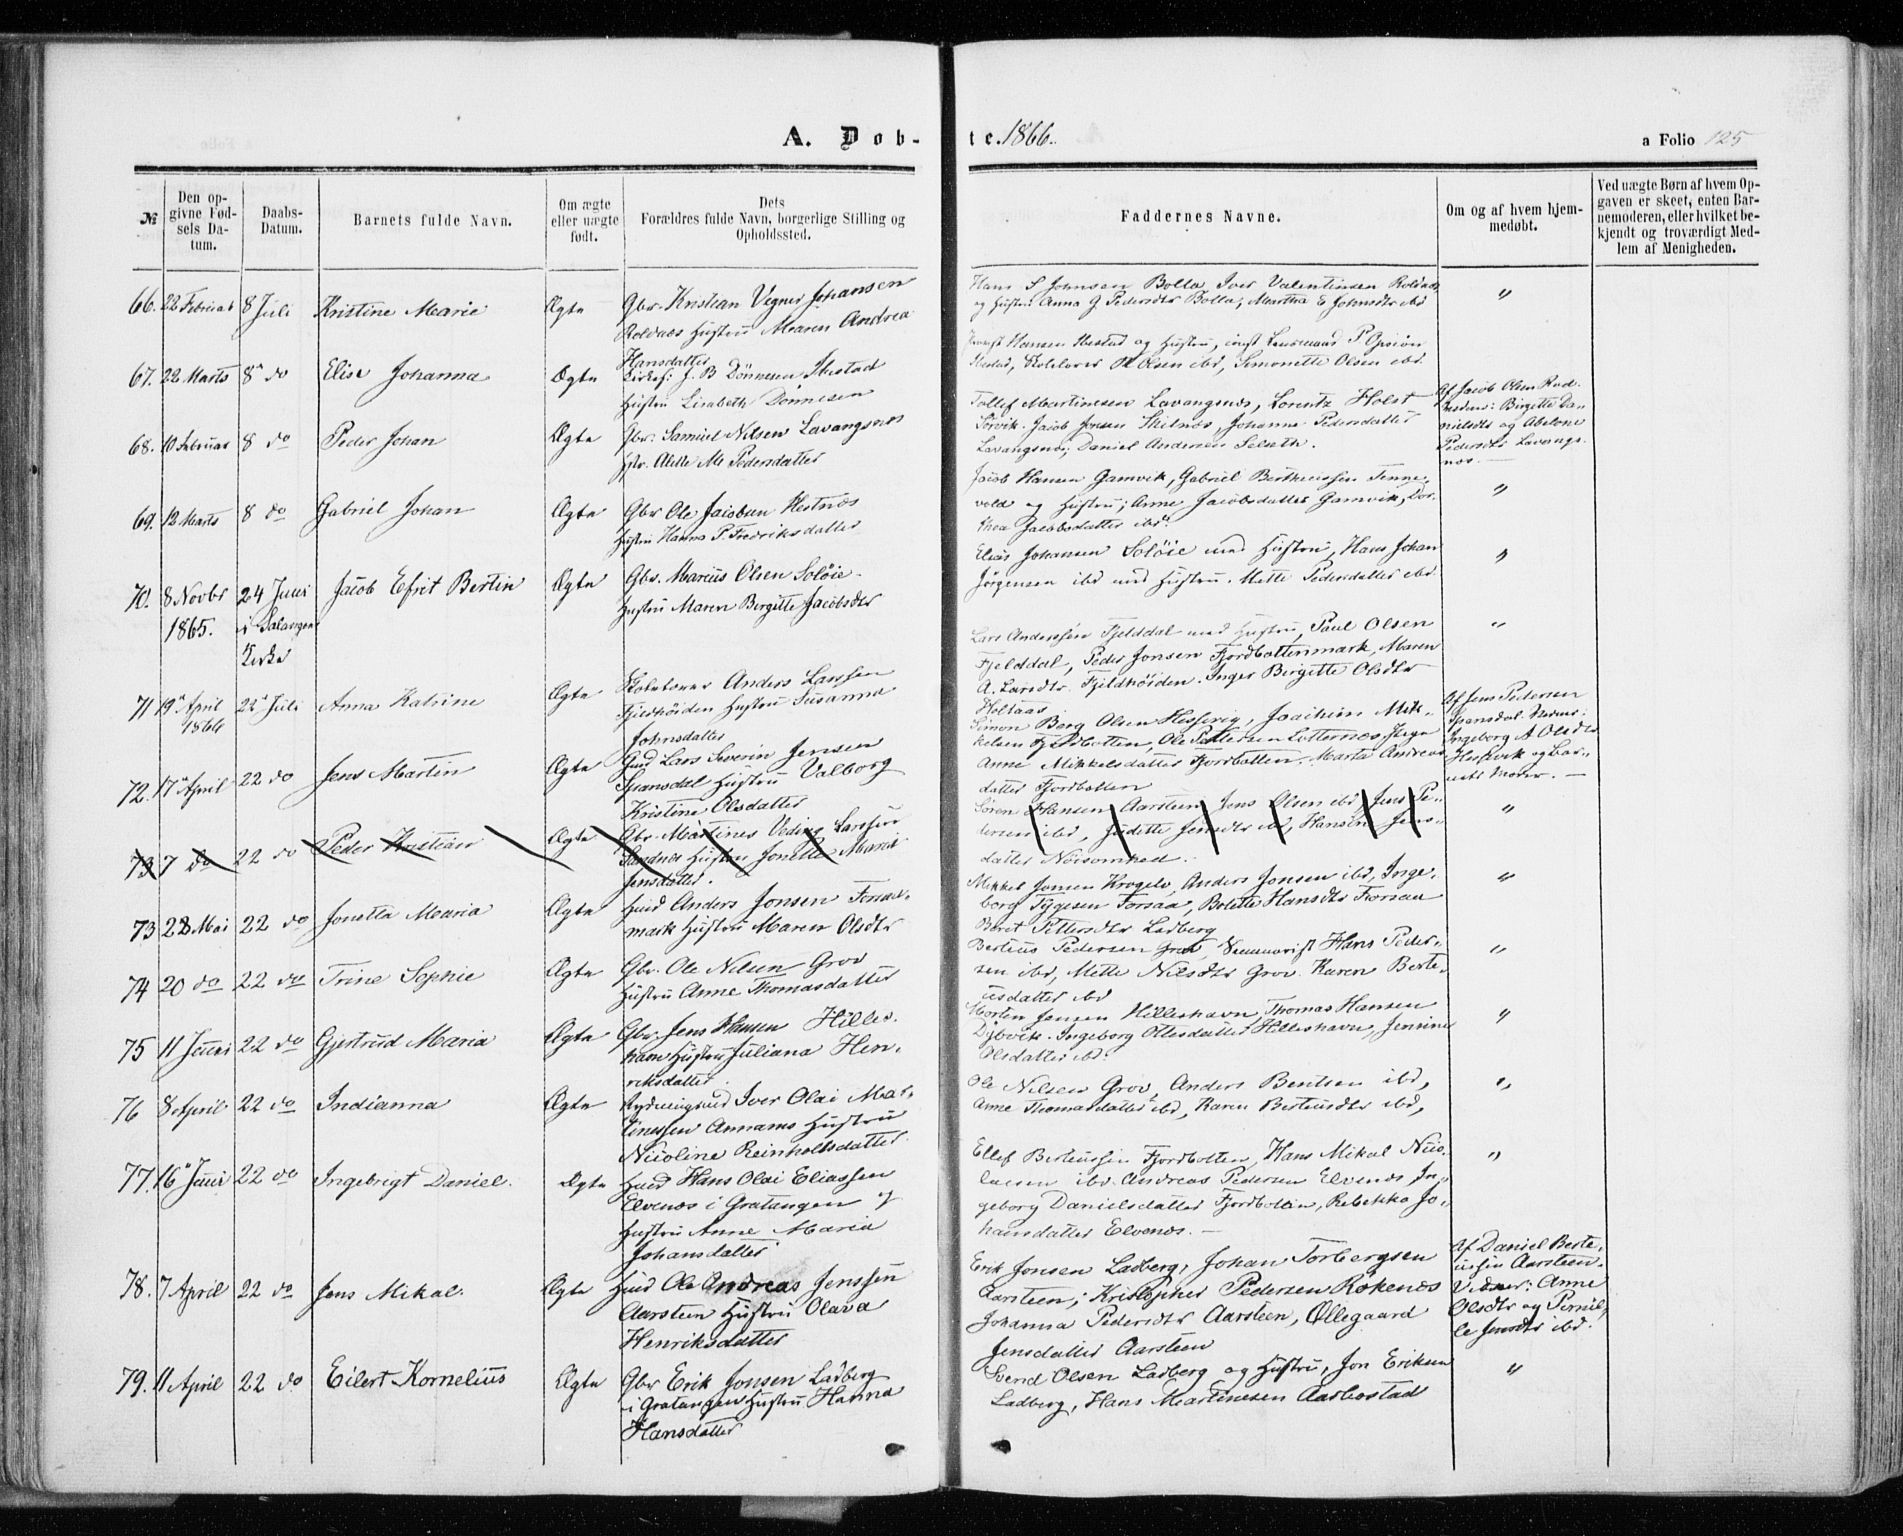 A. Døb-
te. 1866.
a Folio 125
№
Den op-
givne Fød-
sels Da-
tum.
Daabs-
Datum.
Barnets fulde Navn.
Om ægte
eller uægte
født.
Dets
Forældres fulde Navn, borgerlige Stilling og
Opholdssted.
Faddernes Navne.
Om og af hvem hjem-
medøbt.
Ved uægte Børn af hvem Op-
gaven er skeet, enten Bar-
nemoderen, eller hvilket be-
kjendt og troværdigt Med-
lem af Menigheden.
66. 22 Februar 8 Juli Kristine Marie Ægte
Gbr. Kristian Vegner Johansen
Roldnæs Hustru Maren Andrea
Hansdatter
Hans S Johnsen Bolla, Iver Valentinsen Roldnæs
og Hustru Anna G Pedersdtr Bolla, Martha E Johnsdtr ibd
"
67. 22 Marts 8 do Elise Johanna Ægte
J. B Dönnesen Ibestad
Hustru Lisabeth Dönnesen
Hansen Ibestad og Hustru, const Lensmand P
Ibestad, Olsen ibd, Simonette Olsen ibd
68. 10 Februar 8 do Peder Johan Ægte
Gbr. Samuel Nilsen Lavangsnes
Hstr. Alette M Pedersdatter
Tollef Martinesen Lavangsnes, Lorentz Holst
Sörvik. Jacob Jonsen Johanna Pedersdatter
Lavangsnes; Daniel Andersen Selseth.
Af Jacob Olsen Rod-
Birgitte Da-
nielsdtr og Abelone
Pedersdtr Lavangs-
nes.
69. 12 Marts 8 do Gabriel Johan Ægte
Gbr Ole Jacobsen Hestnæs
Hustru Hanna P. Fredriksdatter
Jacob Hansen Gamvik, Gabriel Bertheussen Tenne-
vold og Hustru; Anne Jacobsdatter Gamvik, Dor-
thea Jacobsdatter ibd
"
70. 8 Novbr 24 Juni Jacob Efrit Bertin Ægte
1865. i Salangens
Kirke
Gbr. Marius Olsen Solöie
Hustru Maren Birgitte Jacobsdtr
Elias Johansen Solöie med Hustru, Hans Johan
Jörgensen ibd med Hustru. Mette Pedersdatter ibd
"
71 19 April 22 Juli Anna Katrine Ægte
1866
Anders Larssen
Fjeldhöiden Hustru Susanna
Johnsdatter
Lars Anderssen Fjelddal med Hustru, Paul Olsen
Fjelddal, Peder Jonsen Fjordbottenmark, Maren
A. Larsdtr. Fjeldhöiden. Inger Birgitte Olsdtr
Holtaas
"
72. 17 April 22 do Jens Martin Ægte
Lars Severin Jensen
Spansdal Hustru Valborg
Kristine Olsdatter
Simon Berg Olsen Hessevig, Joachim Mik-
kelsen Fjordbotten, Ole Pettersen
Anne Mikkelsdatter Fjordbotten. Marta Andreas
datter Fjordbotten
Af Jens Pedersen
Spansdal.
Ingeborg A Olsdtr
Hessvik og Bar-
nets Moder.
73 7 do 22 do Peder Kristian Ægte
Gbr. Martines Veding Larssen
Sandnes Hustru Jonette Marit
Jensdatter.
Sören Hansen Aarsteen, Jens Olsen ibd, Jens Pe-
dersen ibd, Judette Jensdtr ibd, Hansine Jens-
datter Nöisomhed.
"
73 28 Mai 22 do Jonetta Maria Ægte
Huusd Anders Jonsen Forsaa-
mark Hustru Maren Olsdtr
Mikkel Jonsen Krogelv, Anders Jonsen ibd, Inge-
borg Tygesen Forsaa, Bolette Hansdtr Forsaa
Beret Pettersdtr Ladberg
"
74 20 do 22 do Trine Sophie Ægte
Gbr. Ole Nilsen Grov
Hustru Anne Thomasdatter
Berteus Pedersen Grov, Hans Peder-
sen ibd, Mette Nilsdtr Grov. Karen Berte-
usdatter ibd
"
75 11 Juni 22 do Gjertrud Maria Ægte
Gbr. Jens Hansen Hilles-
havn Hustru Juliana Hen-
riksdatter
Morten Jensen Hilleshavn, Thomas Hansen
Dybvik. Ingeborg Ottesdatter Hilleshavn, Jensine
Olsdatter ibd.
"
76 8 April 22 do Indianna Ægte
Rydningsmd Iver Olai Mar-
tinessen Annamo Hustru
Nicoline Reinholtsdatter
Ole Nilsen Grov, Anders Bentsen ibd,
Anne Thomasdatter ibd, Karen Berteusdtr ibd,
"
77. 16 Juni 22 do Ingebrigt Daniel. Ægte
Husd Hans Olai Eliassen
Elvenes i Gratangen og
Hustru Anne Maria
Johansdatter
Ellef Berteussen Fjordbotten, Hans Mikal Nico-
laisen ibd. Andreas Pedersen Elvenes, In-
geborg Danielsdatter Fjordbotten, Rebekka Jo-
hansdatter Elvenes.
"
78. 7 April 22 do Jens Mikal. Ægte
Husd Ole Andreas Jenssen
Aarsteen Hustru Olava
Henriksdatter
Erik Jonsen Ladberg, Johan Torbergsen
Aarsteen; Kristopher Pedersen Rökenes
Johanna Pedersdtr Aarsteen, Ollegaard
Jensdatter Aarsteen
Af Daniel Berte-
ussen Aarsteen.
Vidner: Anne
Olsdtr og Pernil-
le Jensdtr ibd.
79. 11 April 22 do Eilert Kornelius Ægte
Gbr Erik Jonsen Ladberg
i Gratangen Hustru Hanna
Hansdatter
Svend Olsen Ladberg og Hustru, Jon Eriksen
Ladberg, Hans Martinesen Aarbostad
"